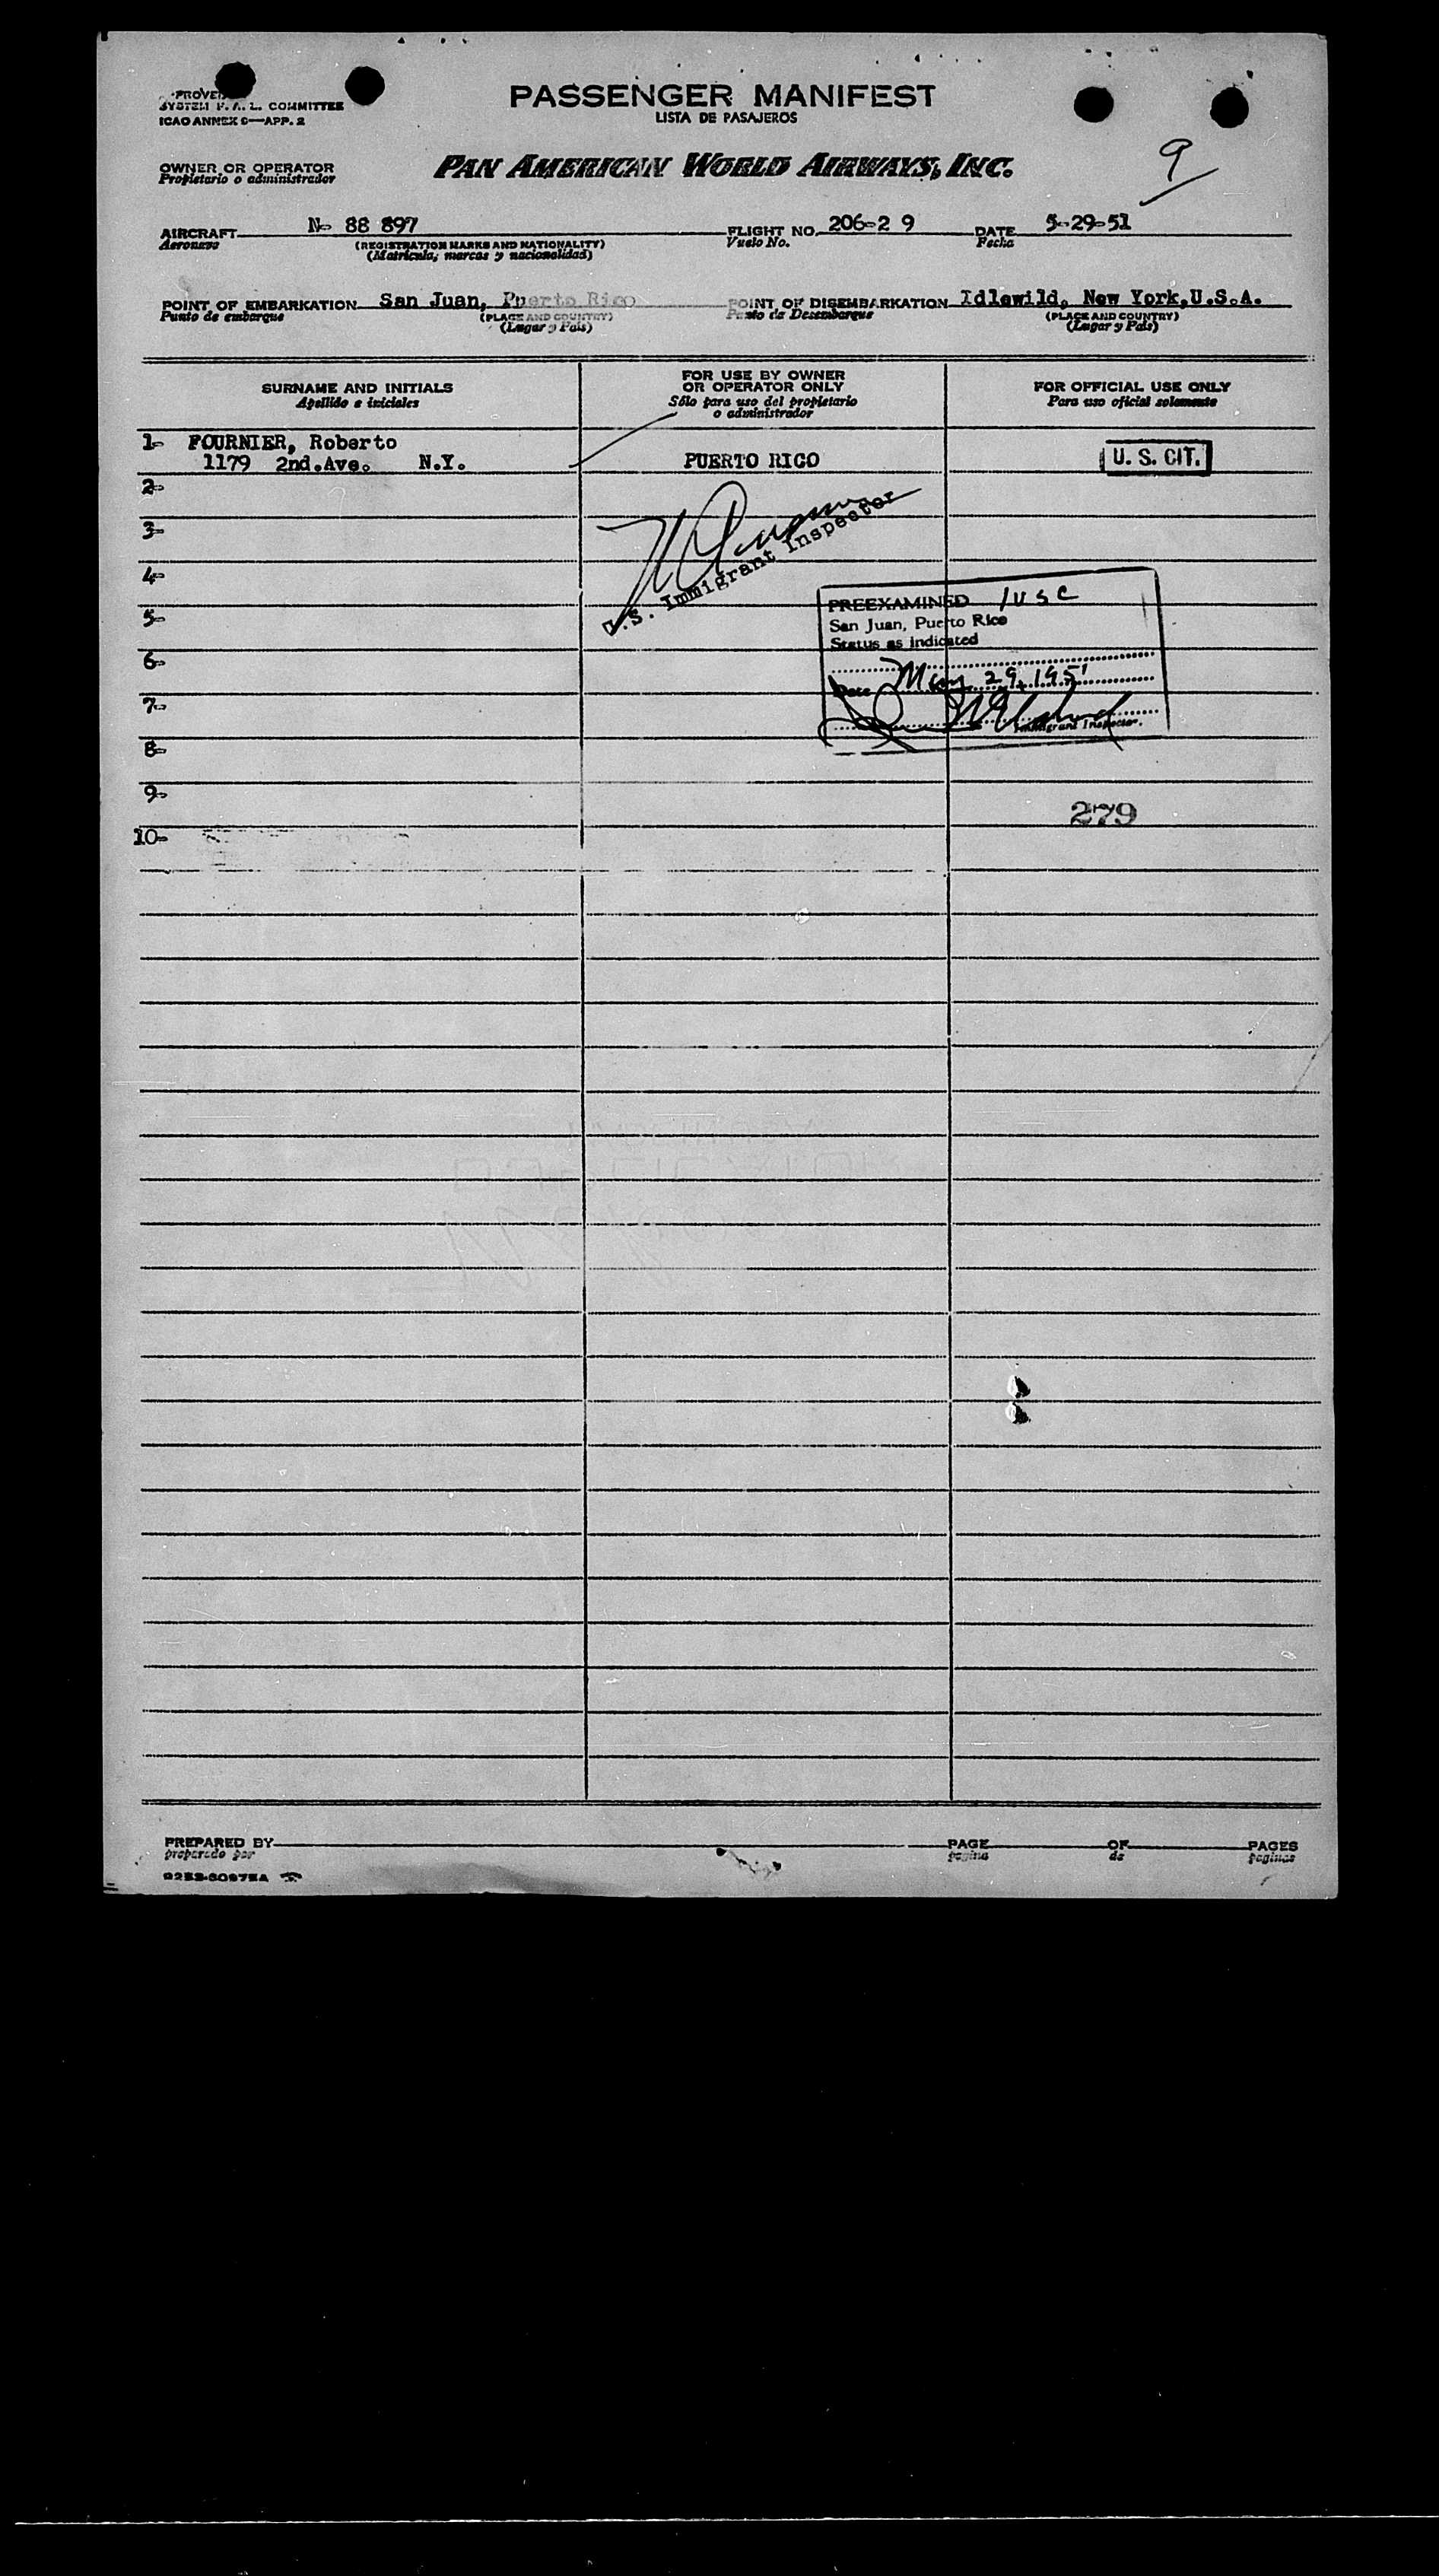 PASSENGER MANIFEST
LISTA DE PASAJEROS
SYSTEM F. A. L. COMMITTEE
ICAO ANNEX 9—APP. 2
9
OWNER OR OPERATOR
Propietario o administrador
PAN AMERICAN WORLD AIRWAYS, INC.
AIRCRAFT N- 88 897 FLIGHT NO. 206-2 9 DATE 5-29-51
Aeronave (REGISTRATION MARKS AND NATIONALITY) Vuelo No. Fecha
(Matrícula, marcas y nacionalidad)
POINT OF EMBARKATION San Juan, Puerto Rico POINT OF DISEMBARKATION Idlewild, New York,U.S.A.
Punto de embarque (PLACE AND COUNTRY) Punto de Desembarque (PLACE AND COUNTRY)
(Lugar y País) (Lugar y País)
SURNAME AND INITIALS
Apellido e iniciales
FOR USE BY OWNER
OR OPERATOR ONLY
Sólo para uso del propietario
o administrador
FOR OFFICIAL USE ONLY
Para uso oficial solamente
1- FOURNIER, Roberto
1179 2nd.Ave. N.Y. PUERTO RICO U. S. CIT.
2-
3-
4-
5-
6-
7-
8-
9-
10-
U.S. Immigrant Inspector
PREEXAMINED 1 USC
San Juan, Puerto Rico
Status as indicated
Date May 29, 1951
Immigrant Inspector.
279
PREPARED BY PAGE OF PAGES
preparado por pagina de paginas